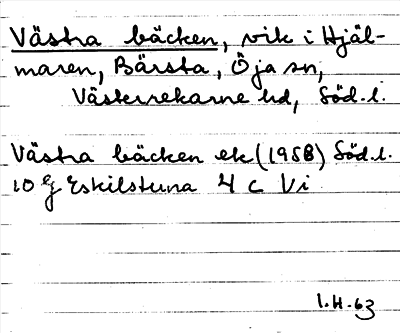 Västra bäcken, vik i Hjäl-
maren, Bärsta, Öja sn,
Västerrekarne hd, Söd. l.
Västra bäcken ek (1958) Söd. l.
10 g Eskilstuna 4 c Vi
1.H.63